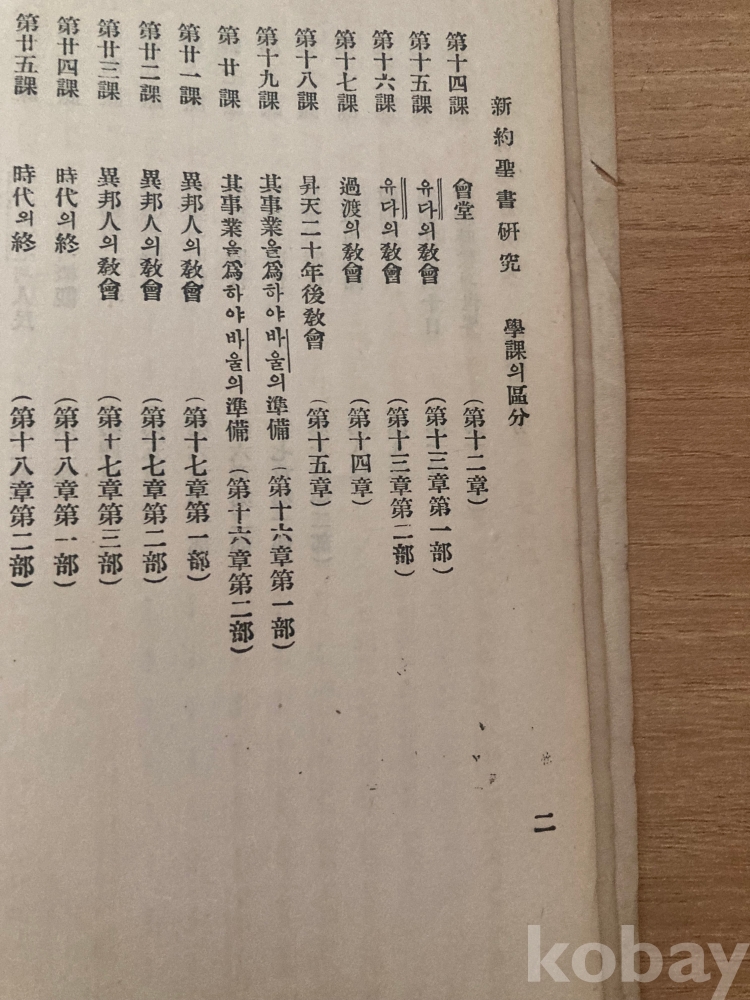 新約聖書硏究 學課의區分
第十四課 會堂 (第十二章)
第十五課 유다의敎會 (第十三章第一部)
第十六課 유다의敎會 (第十三章第二部)
第十七課 過渡의敎會 (第十四章)
第十八課 昇天二十年後敎會 (第十五章)
第十九課 其事業을爲하야바울의準備 (第十六章第一部)
第廿課 其事業을爲하야바울의準備 (第十六章第二部)
第廿一課 異邦人의敎會 (第十七章第一部)
第廿二課 異邦人의敎會 (第十七章第二部)
第廿三課 異邦人의敎會 (第十七章第三部)
第廿四課 時代의終 (第十八章第一部)
第廿五課 時代의終 (第十八章第二部)
二
kobay